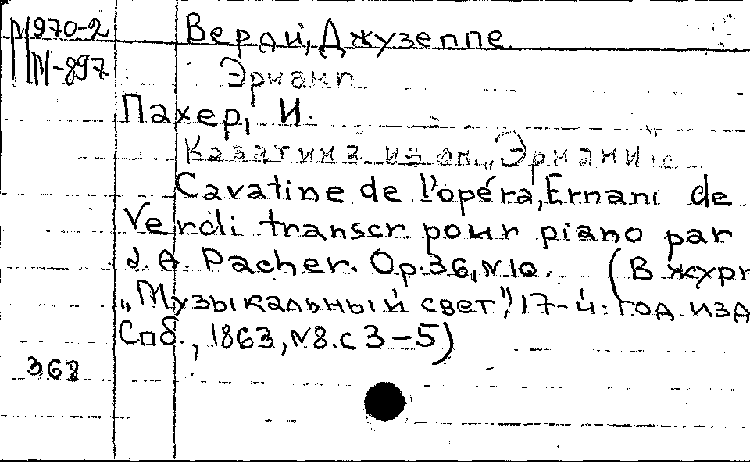 М970-2 Верди, Джузеппе
М-897 Эрнани
Пахер, И.
Каватина из оп. „Эрнани"
Cavatine de l'opéra, Ernani de
Verdi transcr pour piano par
J. A. Pacher. Op. 36, N10. (В журн
„Музыкальный свет", 17-й год изд
Спб., 1863, N8. с 3-5)
368